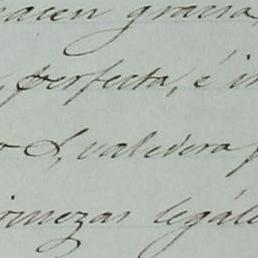 hacen gracia,
, perfecta, é in
&, valedera p
irmezas legale